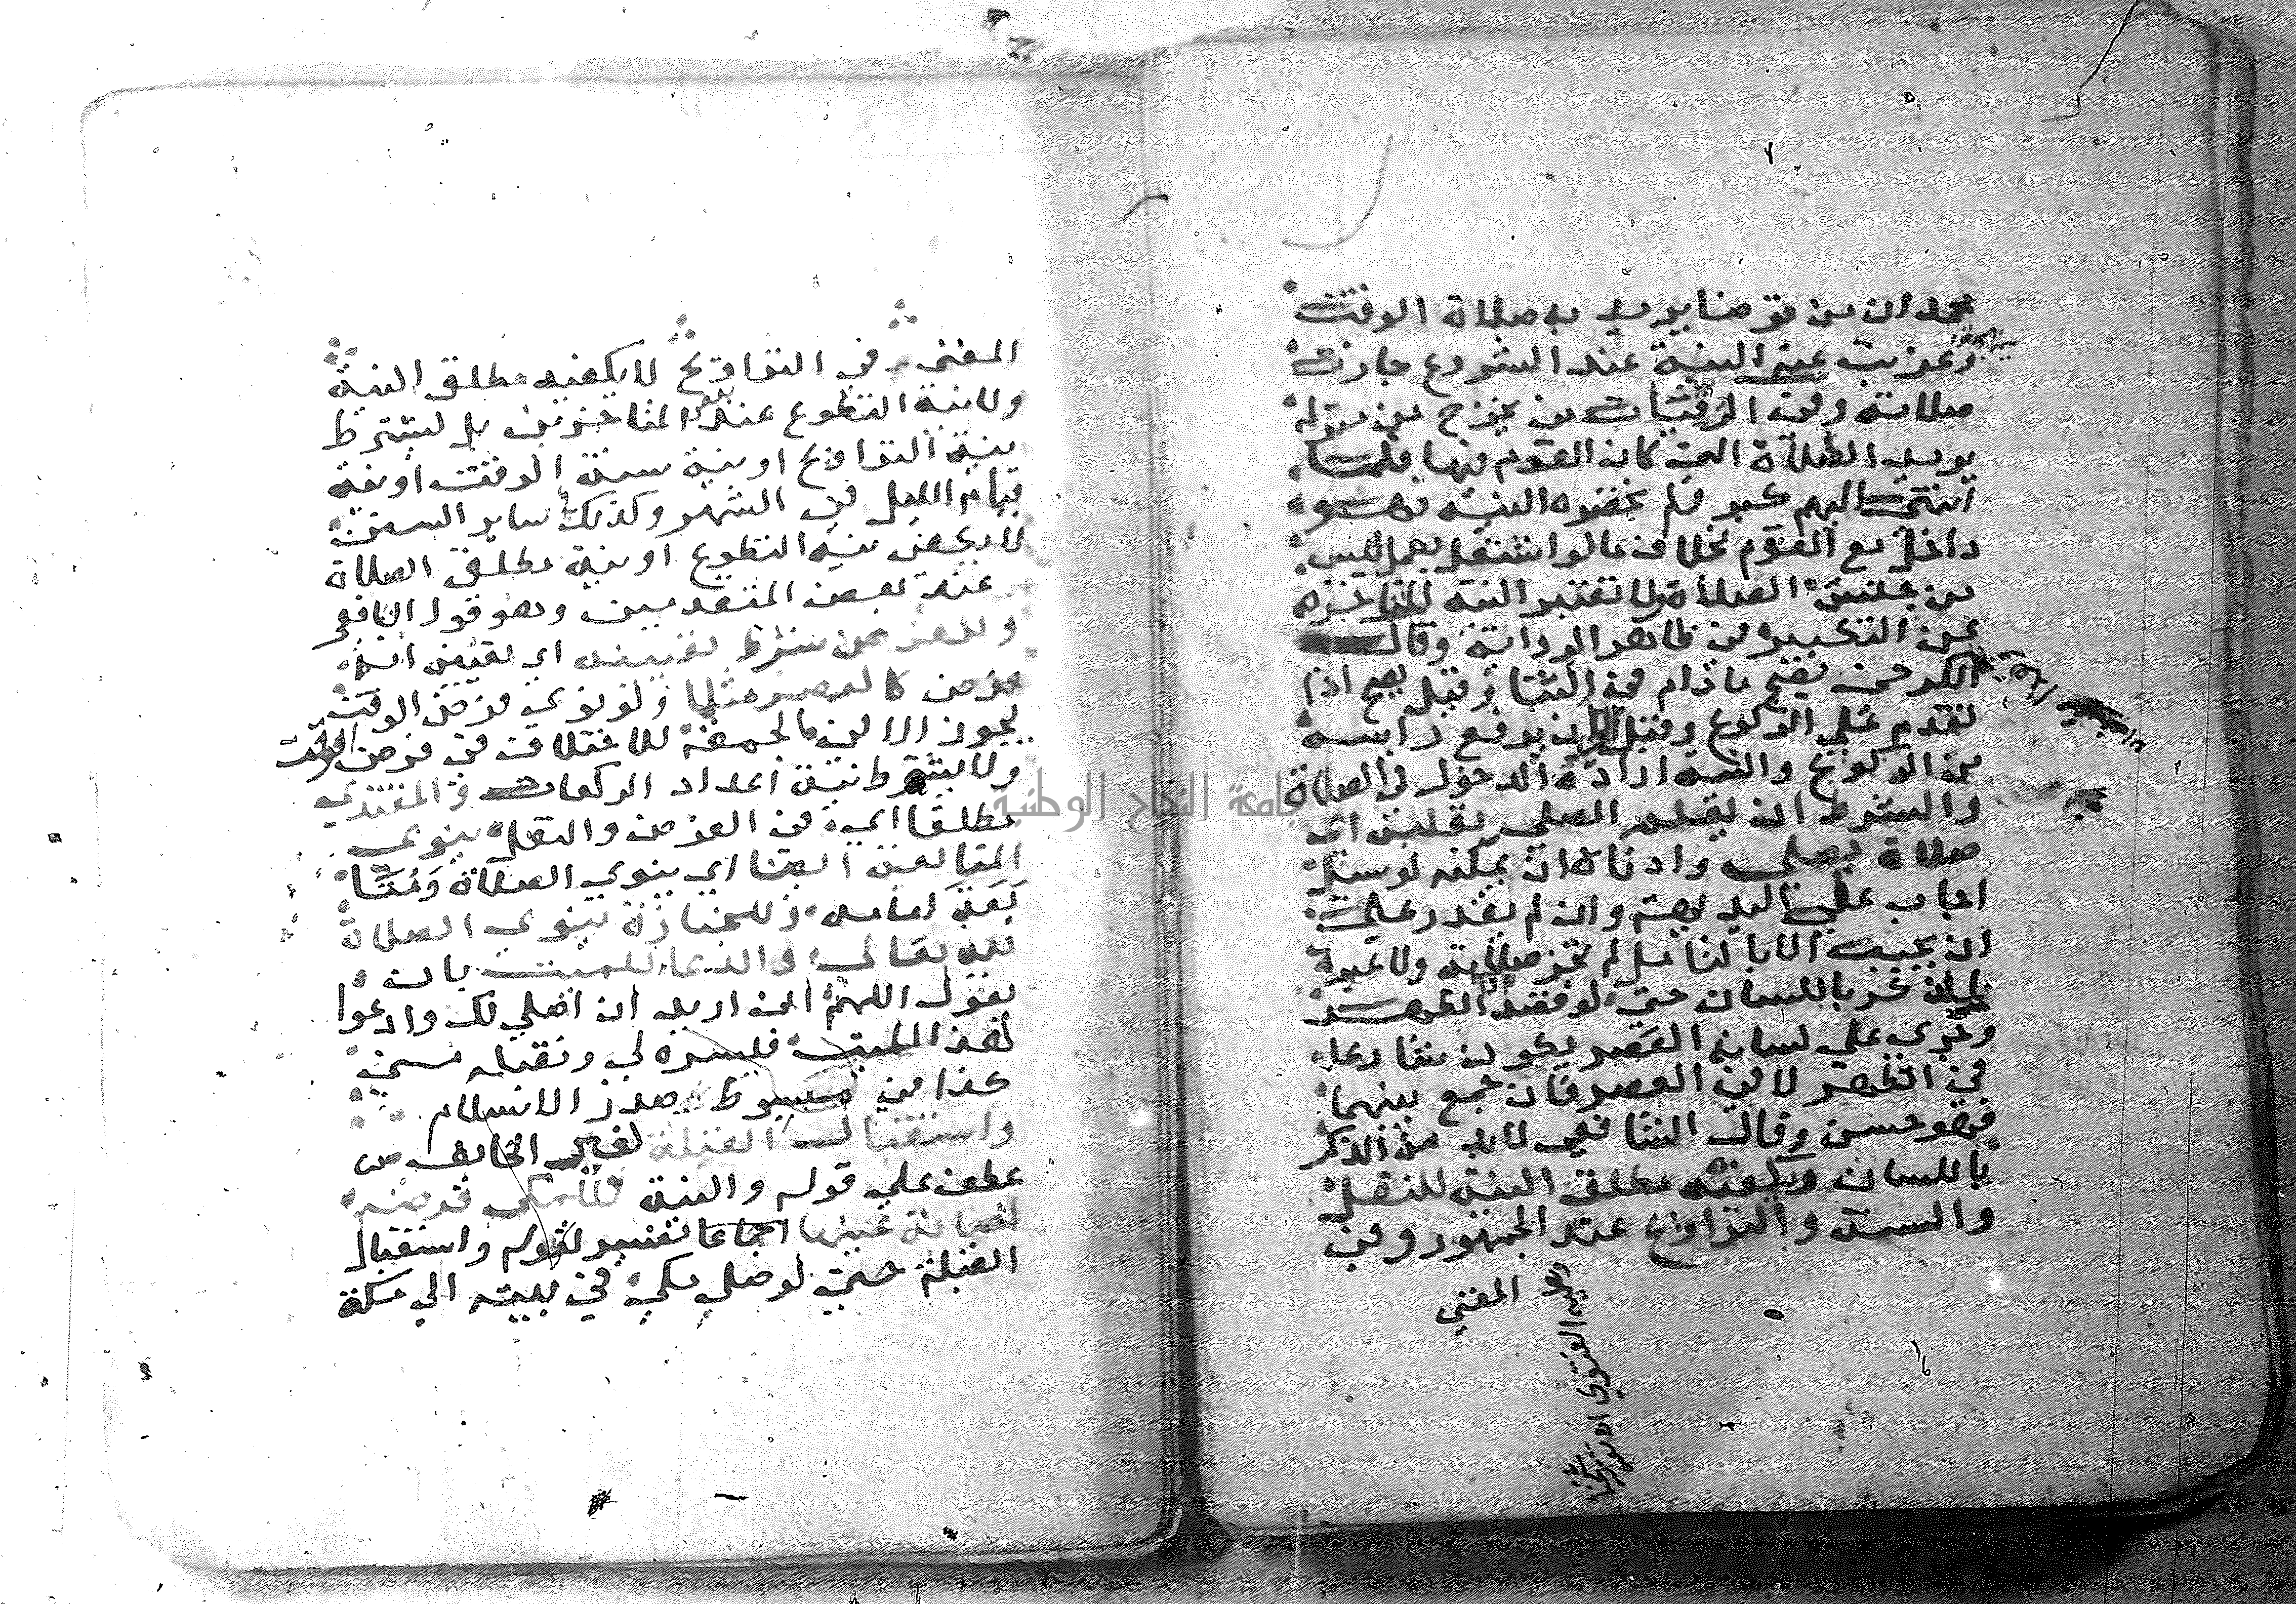 محمد ان من توضا يريد به صلاة الوقت
وعزبت عنه النية عند الشروع جازت
صلاته وفي الرقيات من يخرج من منزله
يريد الصلاة التي كان القوم فيها فلما
انتهى اليهم كبر فلم تحضره النية فهو
داخل مع القوم بخلاف ما لو اشتغل بعمل ليس
من جنس الصلاة ولا تعتبر النية المتاخرة
عن التكبير في ظاهر الرواية وقال
الكرخي يصح ما دام في الثنا وقيل يصح اذا
تقدم علي الركوع وقيل الي ان يرفع راسه
من الركوع والنية ارادة الدخول في الصلاة
والشرط ان يعلم المصلي بقلبه اي
صلاة يصلي وادناه ان يمكنه لو سئل
اجاب علي البديهة وان لم يقدر علي
ان يجيب الا بالتامل لم تجز صلاته ولا عبرة
للذكر باللسان حتى لو قصد الظهر
وجري علي لسانه العصر يكون شارعا
في الظهر لا في العصر فان جمع بينهما
فهو حسن وقال الشافعي لا بد من الذكر
باللسان ويكفيه مطلق النية للنفل
والسنة والتراويح عند الجمهور وفي
المغني
المغني في التراويح لا يكفيه مطلق النية
ولا نية التطوع عند بعض المتاخرين بل يشترط
نية التراويح او نية سنة الوقت او نية
قيام الليل في الشهر وكذلك ساير السنن
لا يكفي نية التطوع او نية مطلق الصلاة
عند بعض المتقدمين وهو قول الشافعي
وللفرض شرط تعيينه اي تعيين انه
فرض كالعصر مثلا ولو نوي فرض الوقت
يجوز الا في الجمعة للاختلاف في فرض الوقت
ولا يشترط نية اعداد الركعات والمقتدي
مطلقا اي في الفرض والنفل ينوي
المتابعة ايضا اي ينوي الصلاة ومتابعة
امامه وللجنازة ينوي الصلاة
لله تعالي والدعا للميت بان
يقول اللهم اني اريد ان اصلي لك وادعوا
لهذا الميت فيسره لي وتقبله مني
كذا في مبسوط صدر الاسلام
واستقبال القبلة لغير الخايف
عطف علي قوله والنية فللمكي فرضه
اصابة عينها اجماعا تفسير لقوله واستقبال
القبلة حتى لو صلي مكي في بيته الي مكة